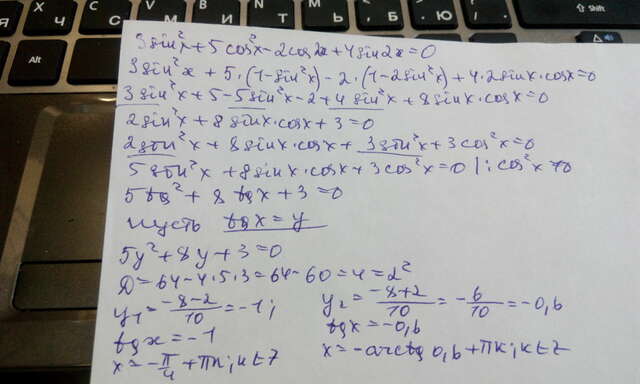 Shift
3sin²x+5cos²x-2cos2x+4sin2x=0
3sin²x+5·(1-sin²x)-2·(1-2sin²x)+4·2sinx·cosx=0
3sin²x+5-5sin²x-2+4sin²x+8sinx·cosx=0
2sin²x+8sinx·cosx+3=0
2sin²x+8sinx·cosx+3sin²x+3cos²x=0
5sin²x+8sinx·cosx+3cos²x=0 |:cos²x≠0
5tg²+8tgx+3=0
пусть tgx=y
5y²+8y+3=0
D=64-4·5·3=64-60=4=2²
y₁=(-8-2)/10=-1; y₂=(-8+2)/10=-6/10=-0,6
tgx=-1 tgx=-0,6
x=-π/4+πк; к∈Z x=-arctg0,6+πк; к∈Z